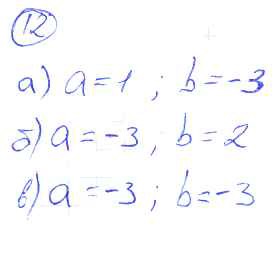 12
а) a = 1 ; b = -3
б) a = -3 ; b = 2
в) a = -3 ; b = -3